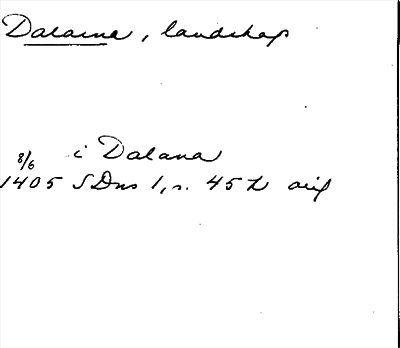 Dalarna, landskap
i Dalana
8/6
1405 SDns 1, s. 45 h orig